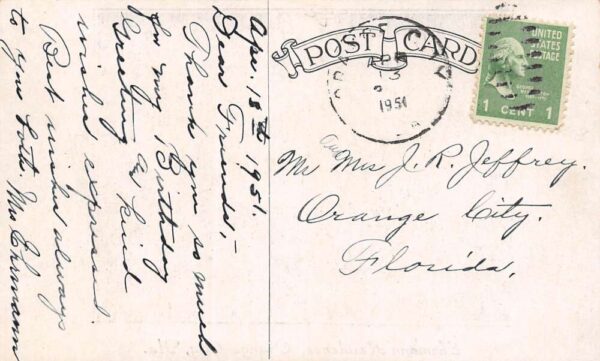 POST CARD
UNITED STATES
POSTAGE
1 CENT 1
APR
13
1951
Mr and Mrs J. R. Jeffrey.
Orange City.
Florida.
Apr. 13th 1951.
Dear Friends,-
Thank you so much
for my Birthday
Greeting & kind
wishes expressed
Best wishes always
to you both. Mrs Ehrmann